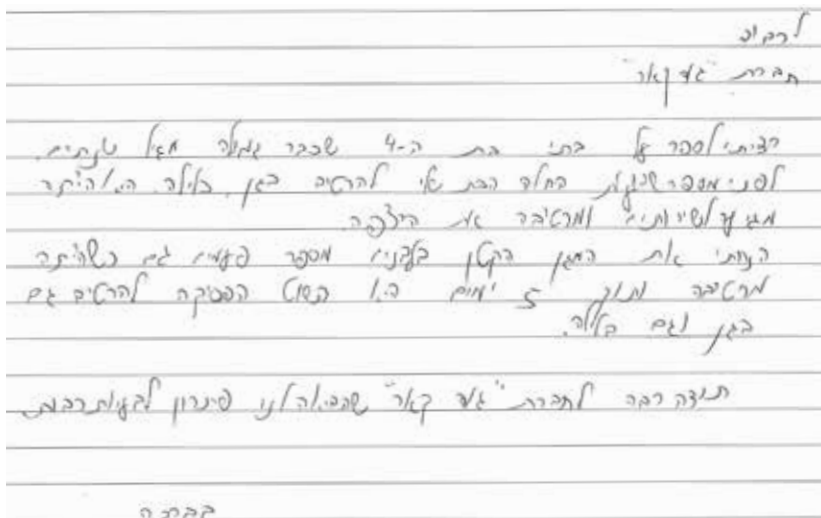 לכבוד
חברת "גוד קאר"
רציתי לספר על בתי בת ה-4 שכבר גמולה מגיל שנתיים.
לפני מספר שבועות החלה הבת שלי להרטיב בגן, בלילה היא הייתה
מגיעה לשירותים ומרטיבה את הרצפה.
הנחתי את המגן הקטן בתחתונים מספר פעמים גם כשהייתה
מרטיבה ותוך 5 ימים היא פשוט הפסיקה להרטיב גם
בגן וגם בלילה.
תודה רבה לחברת "גוד קאר" שהביאה לנו פיתרון לבעיות רבות
בברכה